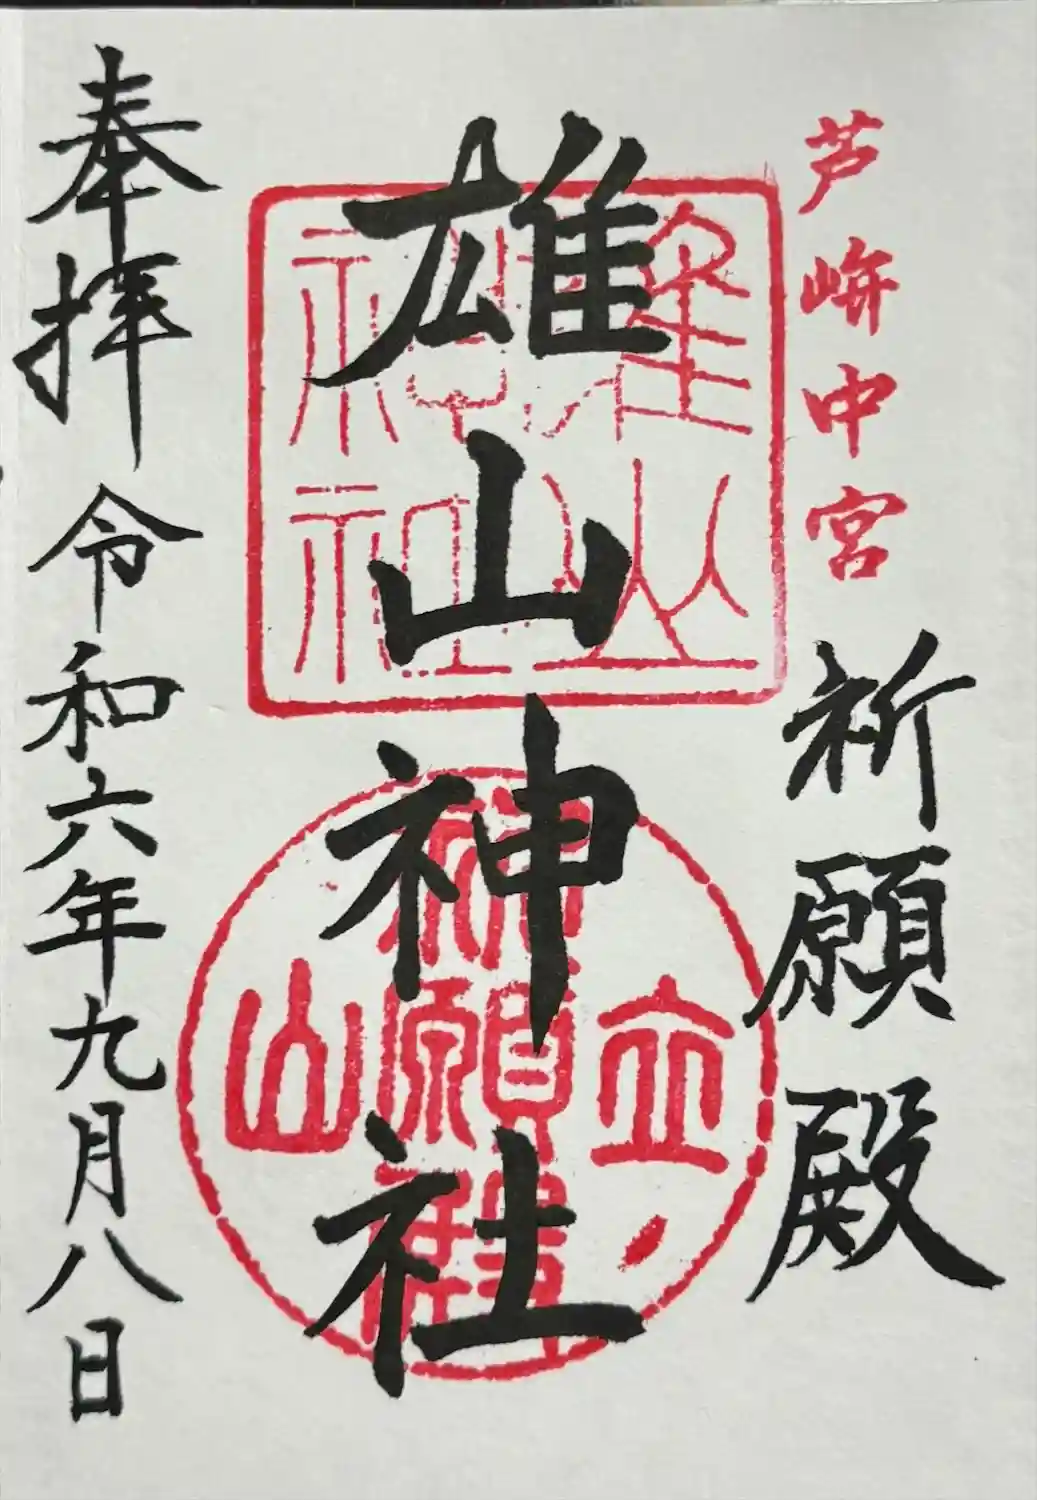 芦峅中宮
祈願殿
雄山神社
雄山
神社
立山
祈願殿
奉拝
令和六年九月八日